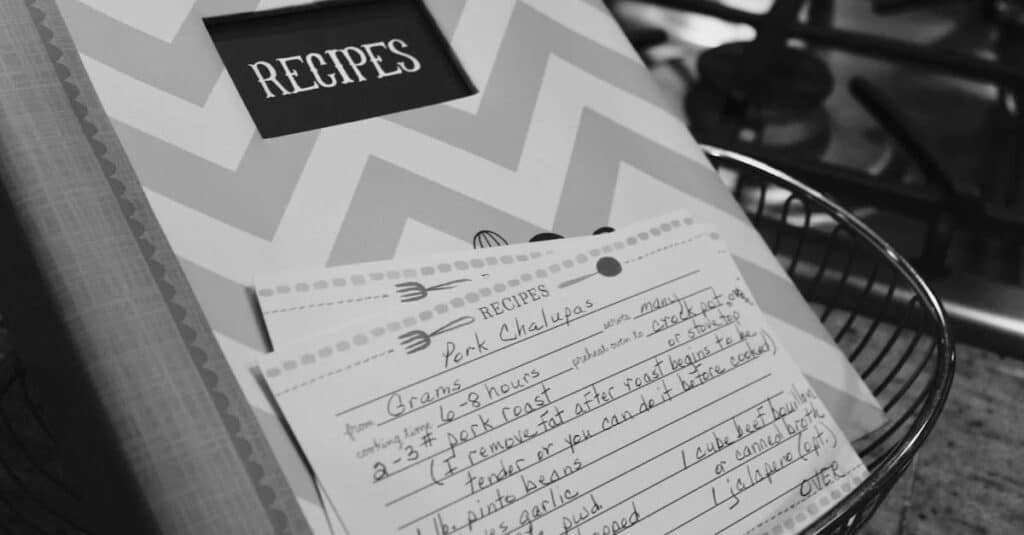 RECIPES
RECIPES
Pork Chalupas
from Grams serves many
cooking time 6-8 hours preheat oven to crock pot, oven
or stove top
2-3 # pork roast
(I remove fat after roast begins to be
tender or you can do it before cooked)
lb. pinto beans 1 cube beef bouillon
garlic or canned broth
pwd. 1 jalapeño (opt.)
OVER